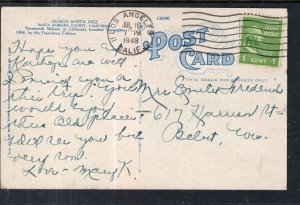 MISSION SANTA INEZ
SANTA BARBARA COUNTY, CALIFORNIA
Nineteenth Mission in California founded September
1804, by the Franciscan Fathers.
LOS ANGELES
JUL 16
PM
1948
CALIF.
POST
CARD
THIS SPACE FOR ADDRESS ONLY
1 CENT
Hope you &
are well
of you on
this trip. You
would enjoy
this Old place.
Will see you both
very soon.
Love - Mary K.
Mrs Emilie
617 Harrison St
Beloit, Wis.